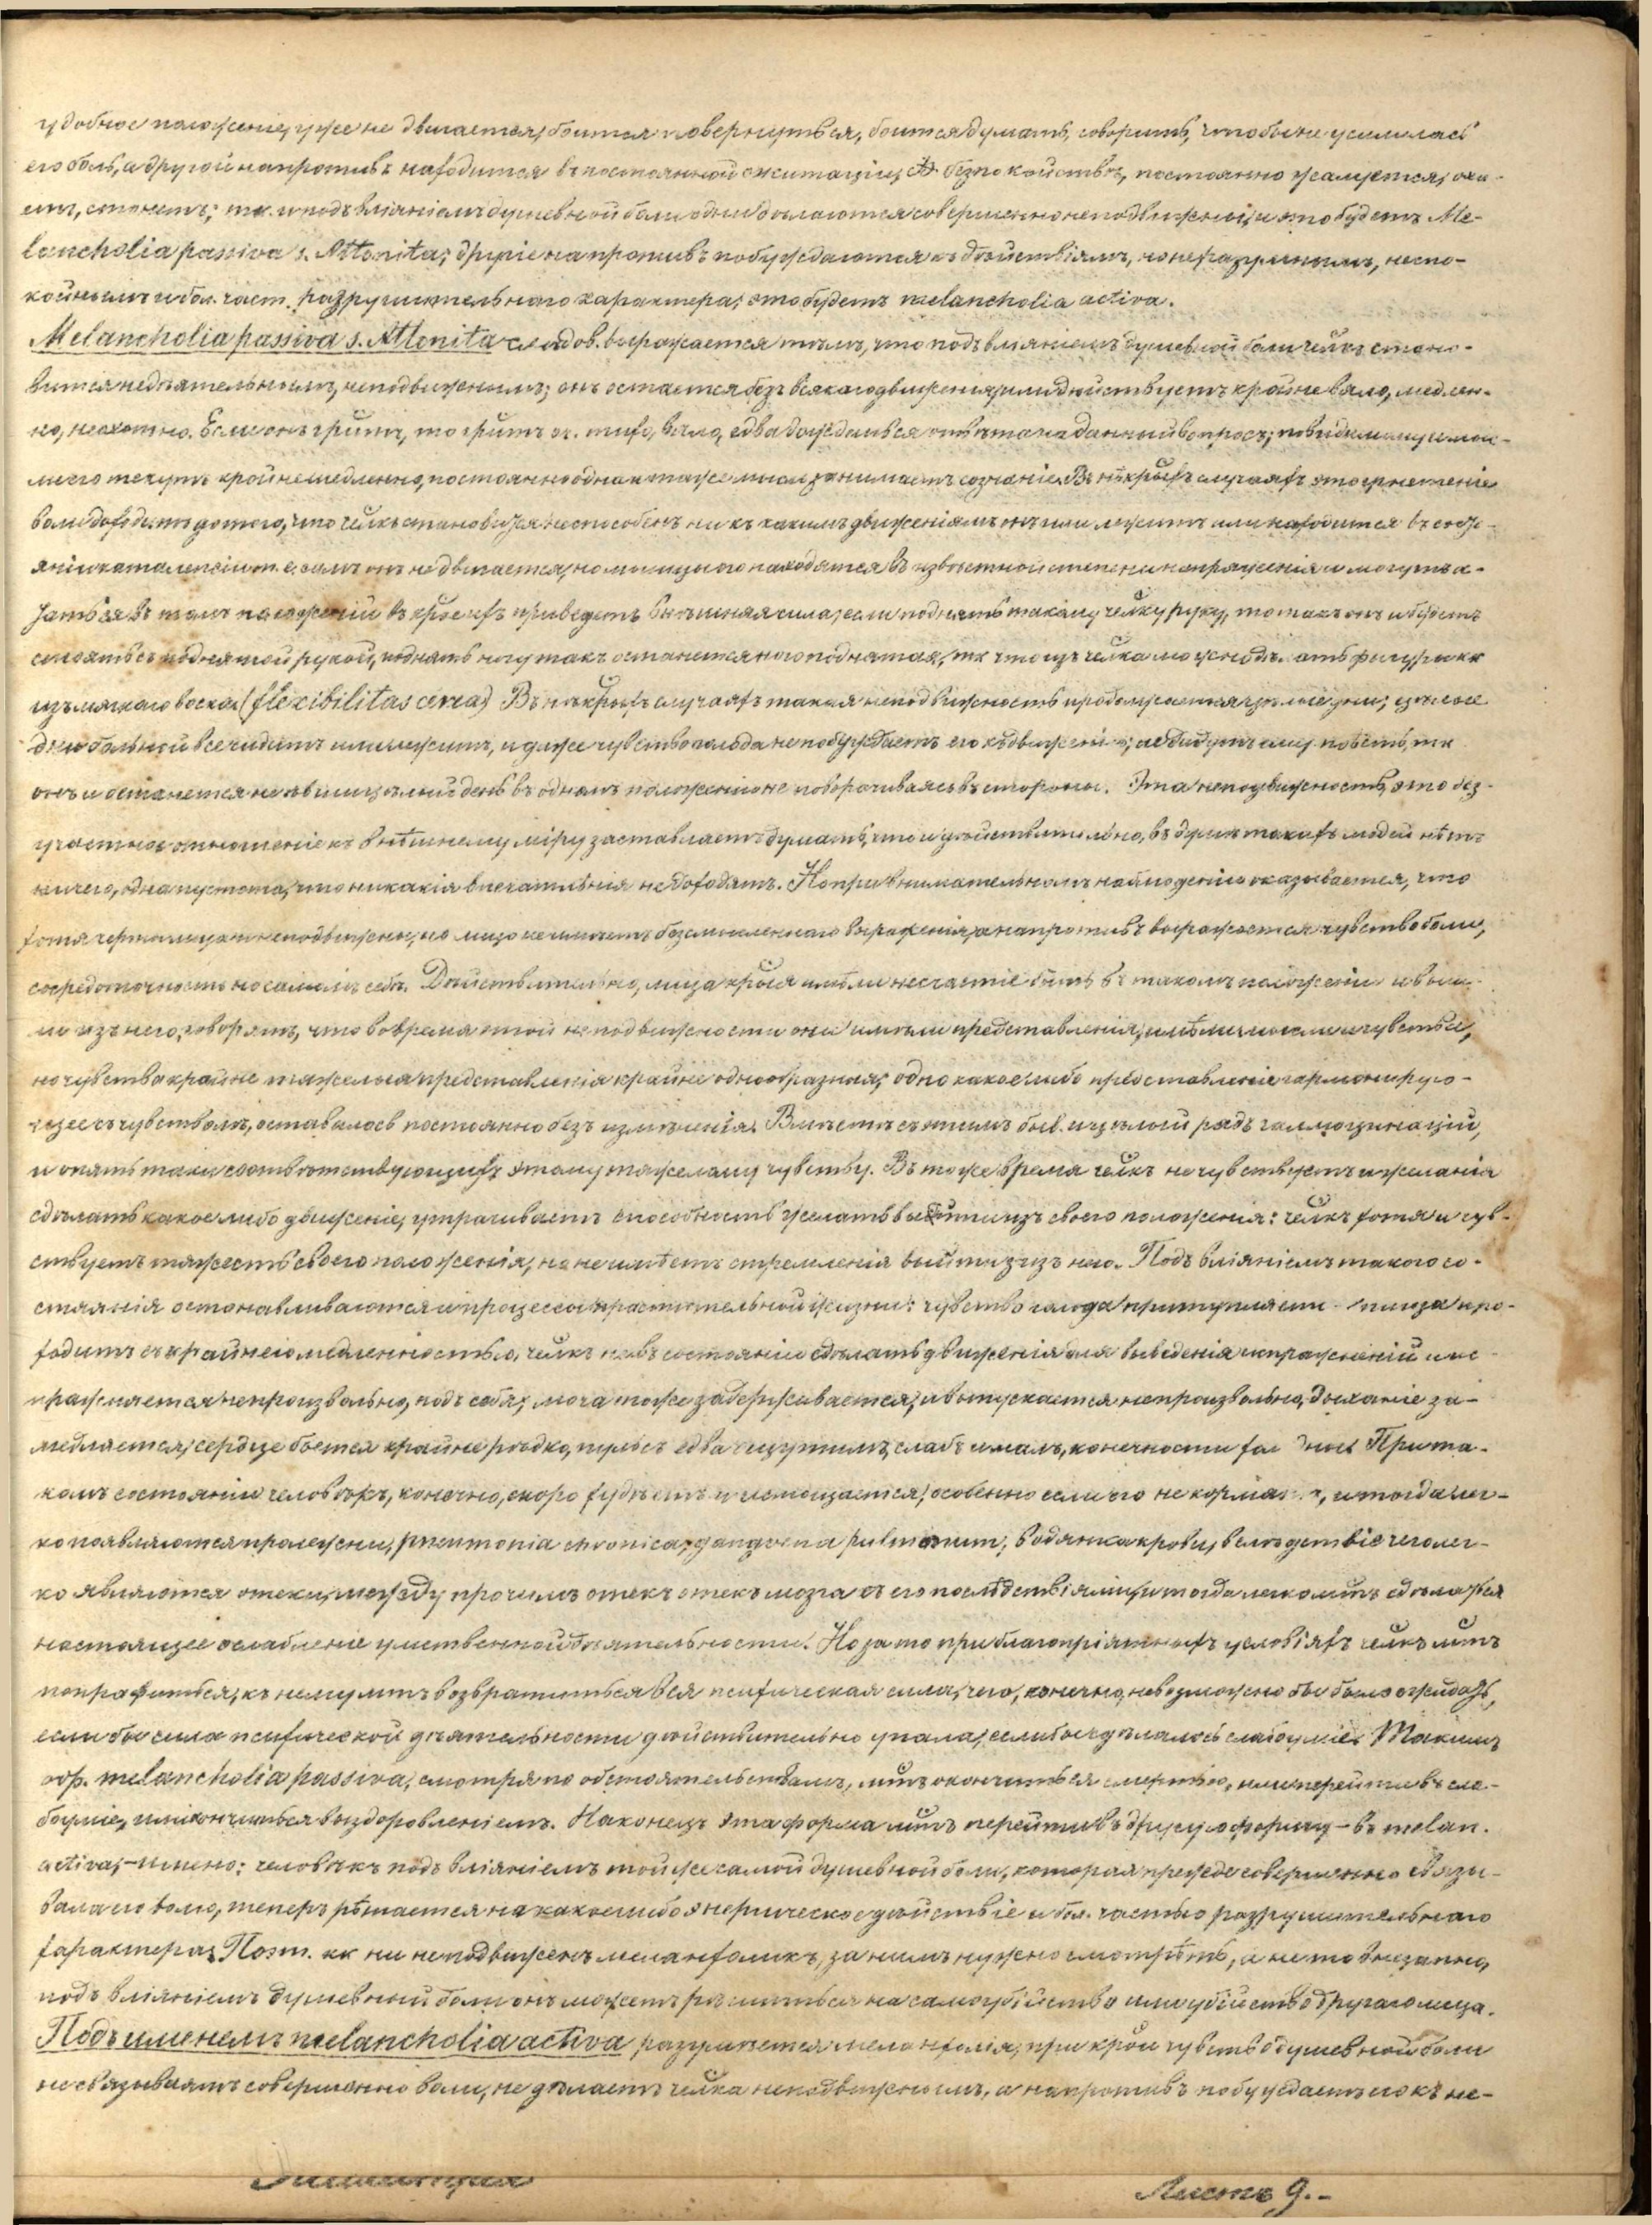 удобное положеніе, уже не двигается, боится повернуться, боится думать, говорить, чтобы не усилилась
его боль, а другой напротивъ находится въ постоянной ажитаціи, безпокойствѣ, постоянно жалуется, оха-
етъ, стонетъ; тк. и подъ вліяніемъ душевной боли одни дѣлаются совершенно неподвижны, и это будетъ Me-
lancholia passiva s. Attonita; другіе напротивъ побуждаются къ дѣйствіямъ, но неразумнымъ, неспо-
койнымъ и бол. част. разрушительнаго характера; это будетъ melancholia activa.
Melancholia passiva s. Attonita слѣдов. выражается тѣмъ, что подъ вліяніемъ душевной боли челкъ стано-
вится недѣятельнымъ, неподвижнымъ; онъ остается безъ всякаго движенія, или дѣйствуетъ крайне вяло, медлен-
но, неохотно. Если онъ гритъ, то гритъ оч. тихо, вяло, едва дождешься отвѣта на данный вопросъ; повидимому и мыс-
ли его текутъ крайне медленно, постоянно одна и таже мысль занимаетъ сознаніе. Въ нѣкрыхъ случаяхъ это угнетеніе
воли доходитъ до того, что челкъ становится неспособенъ ни къ какимъ движеніямъ онъ или лежитъ или находится въ состо-
яніи каталепсіи т. е. самъ онъ не двигается, но мышцы его находятся въ извѣстной степени напряженія и могутъ ока-
заться въ томъ положеніи въ крое ихъ приведетъ внѣшняя сила; если поднять такому челку руку, то такъ онъ и будетъ
стоять съ поднятой рукой, поднять ногу такъ останется нога поднятая, тк что изъ челка можно дѣлать фигуры кк
изъ мягкаго воска (flexibilitas cerea) Въ нѣкрыхъ случаяхъ такая неподвижность продолжается цѣлые дни; цѣлые
дни больной все сидитъ или лежитъ, и даже чувство голода не побуждаетъ его къ движенію; не дадутъ ему поѣсть, тк
онъ и останется не ѣвши цѣлый день въ одномъ положеніи не поворачиваясь въ стороны. Эта неподвижность, это без-
участное отношеніе къ внѣшнему міру заставляетъ думать, что и дѣйствительно, въ душѣ такихъ людей нѣтъ
ничего, одна пустота, что никакія впечатлѣнія не доходятъ. Но при внимательномъ наблюденіи оказывается, что
хотя черты лица и неподвижны, но лицо не имѣетъ безсмысленнаго выраженія, а напротивъ выражается чувство боли,
сосредоточность на самомъ себѣ. Дѣйствительно, лица крыя имѣли несчастіе быть въ такомъ положеніи и выш-
ли изъ него, говорятъ, что во время этой неподвижности они имѣли представленія, имѣли мысли и чувства,
но чувства крайне тяжелыя представленія крайне однообразныя; одно какое либо представленіе гармонирую-
щее съ чувствомъ, оставалось постоянно безъ измѣненія. Вмѣстѣ съ этимъ был. и цѣлый рядъ галлюцинацій,
и опять таки соотвѣтствующихъ этому тяжелому чувству. Въ тоже время челкъ не чувствуетъ и желанія
сдѣлать какое либо движеніе, утрачиваетъ способность желать выйти изъ своего положенія: челкъ хотя и чув-
ствуетъ тяжесть своего положенія, но не имѣетъ стремленія выйти изъ него. Подъ вліяніемъ такого со-
стоянія останавливаются и процессы растительной жизни: чувство голода притупляетс пища про-
ходитъ съ крайнею медленностью, челкъ не въ состояніи сдѣлать движенія для выведенія испражненій и ис-
пражняется непроизвольно, подъ себя; моча тоже задерживается, и выпускается непроизвольно, дыханіе за-
медляется, сердце бьется крайне рѣдко, пульсъ едва ощутимъ, слабъ и малъ, конечности холодныя При та-
комъ состояніи человѣкъ, конечно, скоро худѣетъ и истощается, особенно если его не кормятъ, и тогда лег-
ко появляются пролежни, pneumonia chronica, gangrena pulmonum, водянка крови, вслѣдствіе чего лег-
ко являются отеки, между прочимъ отекъ отекъ мозга съ его послѣдствіями, и тогда легко мтъ сдѣлаться
настоящее ослабленіе умственной дѣятельности. Но за то при благопріятныхъ условіяхъ челкъ мтъ
поправиться, къ нему мтъ возвратиться вся психическая сила, чего, конечно, невозможно бы было ожидать,
если бы сила психической дѣятельности дѣйствительно упала, если бы сдѣлалось слабоуміе. Такимъ
обр. melancholia passiva, смотря по обстоятельствамъ, мтъ окончиться смертью, или перейти въ сла-
боуміе, или кончиться выздоровленіемъ. Наконецъ эта форма мтъ перейти въ другую форму – въ melan.
activa, – именно: человѣкъ подъ вліяніемъ той же самой душевной боли, которая прежде совершенно связы-
вала его волю, теперь рѣшается на какое либо энергическое дѣйствіе и бол. частью разрушительнаго
характера. Поэт. кк ни неподвиженъ меланхоликъ, за нимъ нужно смотрѣть, а не то внезапно,
подъ вліяніемъ душевной боли онъ можетъ рѣшиться на самоубійство или убійство другаго лица.
Подъ именемъ melancholia activa разумѣется меланхолія, при крой чувство душевной боли
не связываетъ совершенно воли, не дѣлаетъ челка неподвижнымъ, а напротивъ побуждаетъ его къ не-
Листъ 9. –